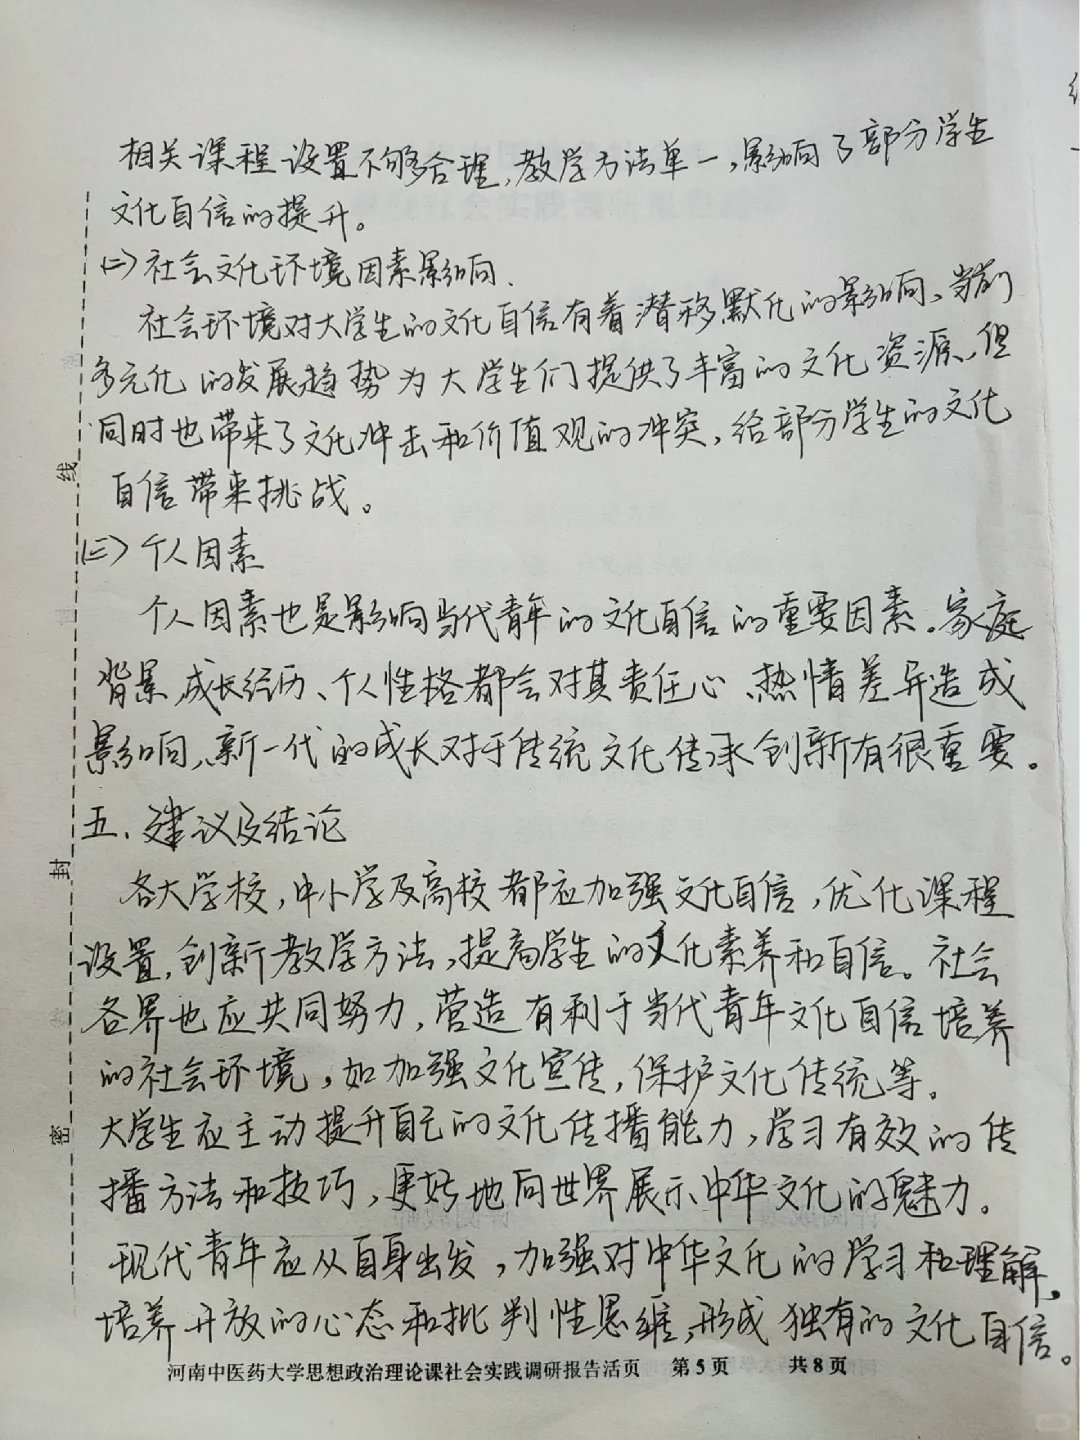 相关课程设置不够合理,教学方法单一,影响了部分学生
文化自信的提升。
(二)社会文化环境因素影响.
社会环境对大学生的文化自信有着潜移默化的影响、当前
多元化的发展趋势为大学生们提供了丰富的文化资源,但
同时也带来了文化冲击和价值观的冲突,给部分学生的文化
自信带来挑战。
(三)个人因素
个人因素也是影响当代青年的文化自信的重要因素.家庭
背景、成长经历、个人性格都会对其责任心、热情差异造成
影响,新一代的成长对于传统文化传承创新有很重要。
五.建议及结论
各大学校,中小学及高校都应加强文化自信,优化课程
设置,创新教学方法,提高学生的文化素养和自信。社会
各界也应共同努力,营造有利于当代青年文化自信培养
的社会环境,如加强文化宣传,保护文化传统等。
大学生应主动提升自己的文化传播能力,学习有效的传
播方法和技巧,更好地向世界展示中华文化的魅力。
现代青年应从自身出发,加强对中华文化的学习和理解,
培养开放的心态和批判性思维,形成独有的文化自信。
河南中医药大学思想政治理论课社会实践调研报告活页 第5页 共8页
线
封
密